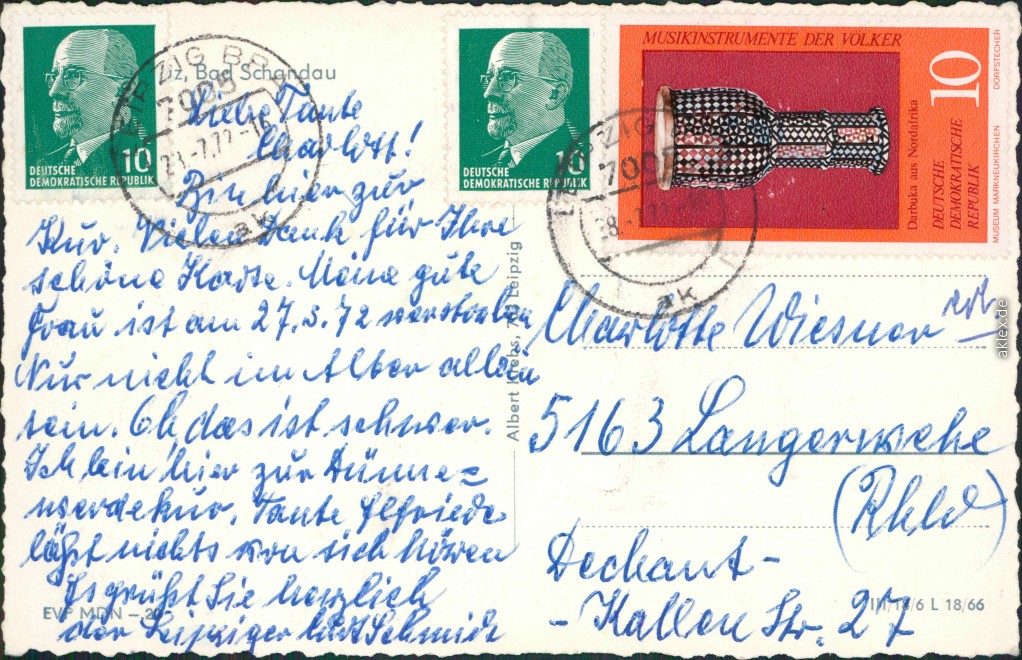 DEUTSCHE
DEMOKRATISCHE REPUBLIK
10
DEUTSCHE
DEMOKRATISCHE REPUBLIK
10
MUSIKINSTRUMENTE DER VÖLKER
10
Darbuka aus Nordafrika
DEUTSCHE
DEMOKRATISCHE
REPUBLIK
MUSEUM MARKNEUKIRCHEN DORFSTECHER
LEIPZIG BPA
7005
ak
7005
ak
Bad Schandau
Liebe Tante
Charlott!
Bin hier zur
Kur. Vielen Dank für Ihre
schöne Karte. Meine gute
Frau ist am 27.3.72 verstorben
Nur nicht im Alter allein
sein. Oh, das ist schwer.
Ich bin hier zur Dünne=
werdekur. Tante Elfriede
läßt nichts von sich hören
Es grüßt Sie herzlich
der Leipziger Schmidt
EVP MDN
Albert Krebs, 703 Leipzig
Charlotte Wiesner
5163 Langerwehe
(Rhld)
Dechant-
-Kallen Str. 27
III/18/6 L 18/66
aklex.de